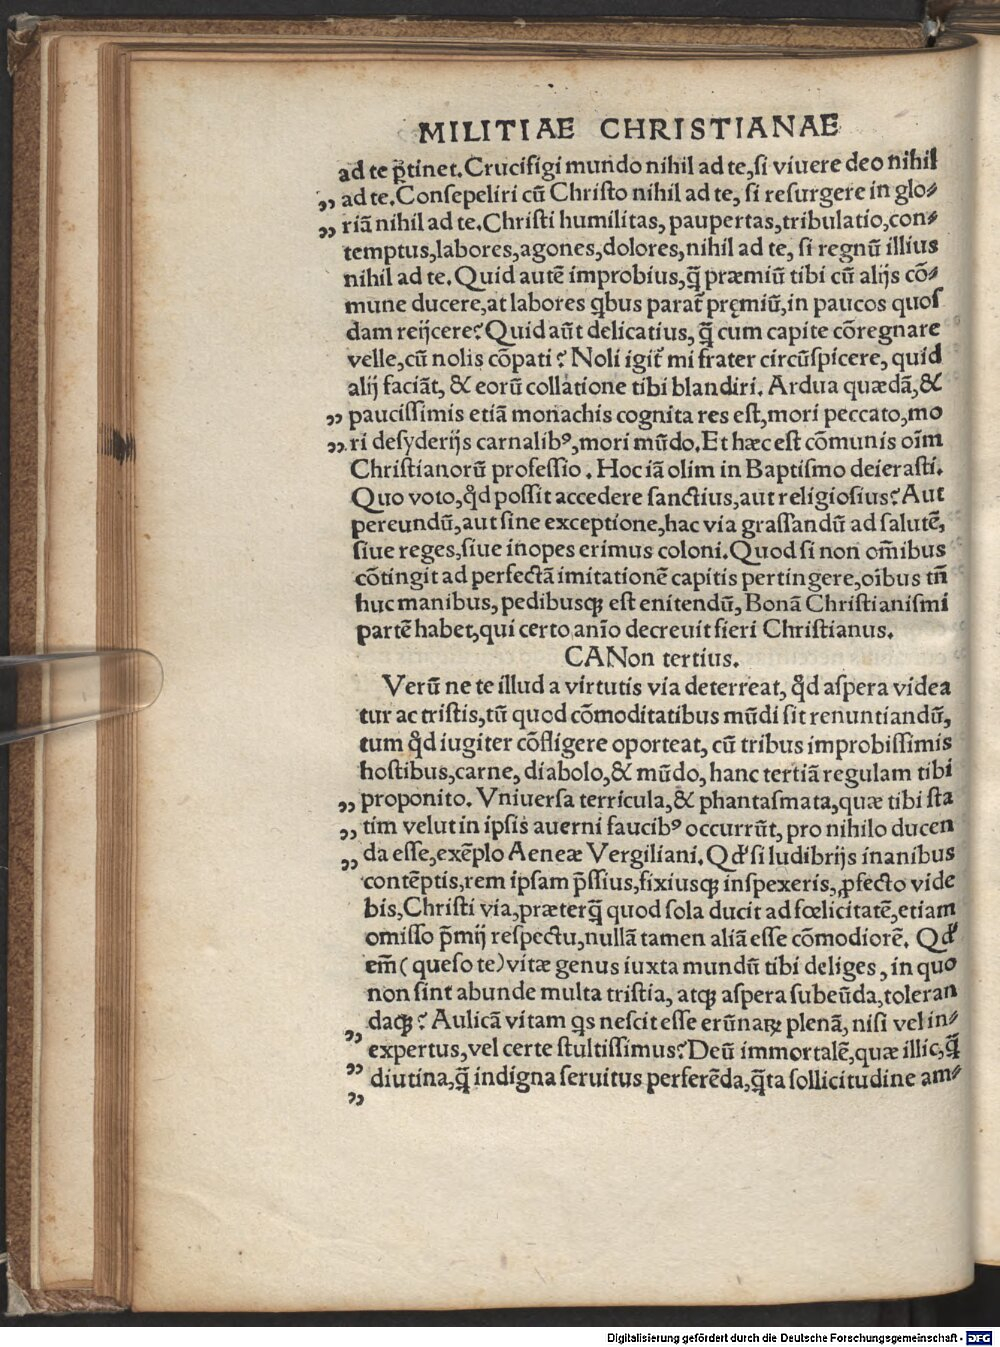 MILITIAE CHRISTIANAE
ad te ꝑtinet. Crucifigi mundo nihil ad te, si viuere deo nihil
„ ad te. Consepeliri cū Christo nihil ad te, si resurgere in glo⸗
„ riā nihil ad te. Christi humilitas, paupertas, tribulatio, con⸗
temptus, labores, agones, dolores, nihil ad te, si regnū illius
nihil ad te. Quid autē improbius, q̃ præmiū tibi cū alijs cō⸗
mune ducere, at labores qbus parat̃ pręmiū, in paucos quos
dam reijcere? Quid aūt delicatius, q̃ cum capite cōregnare
velle, cū nolis cōpati? Noli igit̃ mi frater circūspicere, quid
alij faciāt, & eorū collatione tibi blandiri. Ardua quædā, &
„ paucissimis etiā monachis cognita res est, mori peccato, mo
„ ri desyderijs carnalibꝰ, mori mūdo. Et hæc est cōmunis oīm
Christianorū professio. Hoc iā olim in Baptismo deierasti.
Quo voto, qd possit accedere sanctius, aut religiosius? Aut
pereundū, aut sine exceptione, hac via grassandū ad salutē,
siue reges, siue inopes erimus coloni. Quod si non om̄ibus
cōtingit ad perfectā imitationē capitis pertingere, oībus tñ
huc manibus, pedibusqꝫ est enitendū, Bonā Christianismi
partē habet, qui certo anīo decreuit fieri Christianus.
CANon tertius.
Verū ne te illud a virtutis via deterreat, qd aspera videa
tur ac tristis, tū quod cōmoditatibus mūdi sit renuntiandū,
tum qd iugiter cōfligere oporteat, cū tribus improbissimis
hostibus, carne, diabolo, & mūdo, hanc tertiā regulam tibi
„ proponito. Vniuersa terricula, & phantasmata, quæ tibi sta
„ tim velut in ipsis auerni faucibꝰ occurrūt, pro nihilo ducen
„ da esse, exēplo Aeneæ Vergiliani. Qd si ludibrijs inanibus
contēptis, rem ipsam p̄ssius, fixiusqꝫ inspexeris, ꝓfecto vide
bis, Christi via, præterq̃ quod sola ducit ad fœlicitatē, etiam
omisso p̄mij respectu, nullā tamen aliā esse cōmodiorē. Qd
em̄ (queso te) vitæ genus iuxta mundū tibi deliges, in quo
non sint abunde multa tristia, atqꝫ aspera subeūda, toleran
„ daqꝫ? Aulicā vitam qs nescit esse erūnaꝝ plenā, nisi vel in⸗
„ expertus, vel certe stultissimus? Deū immortalē, quæ illic, q̃
„ diutina, q̃ indigna seruitus perferēda, q̃ta sollicitudine am⸗
Digitalisierung gefördert durch die Deutsche Forschungsgemeinschaft - DFG